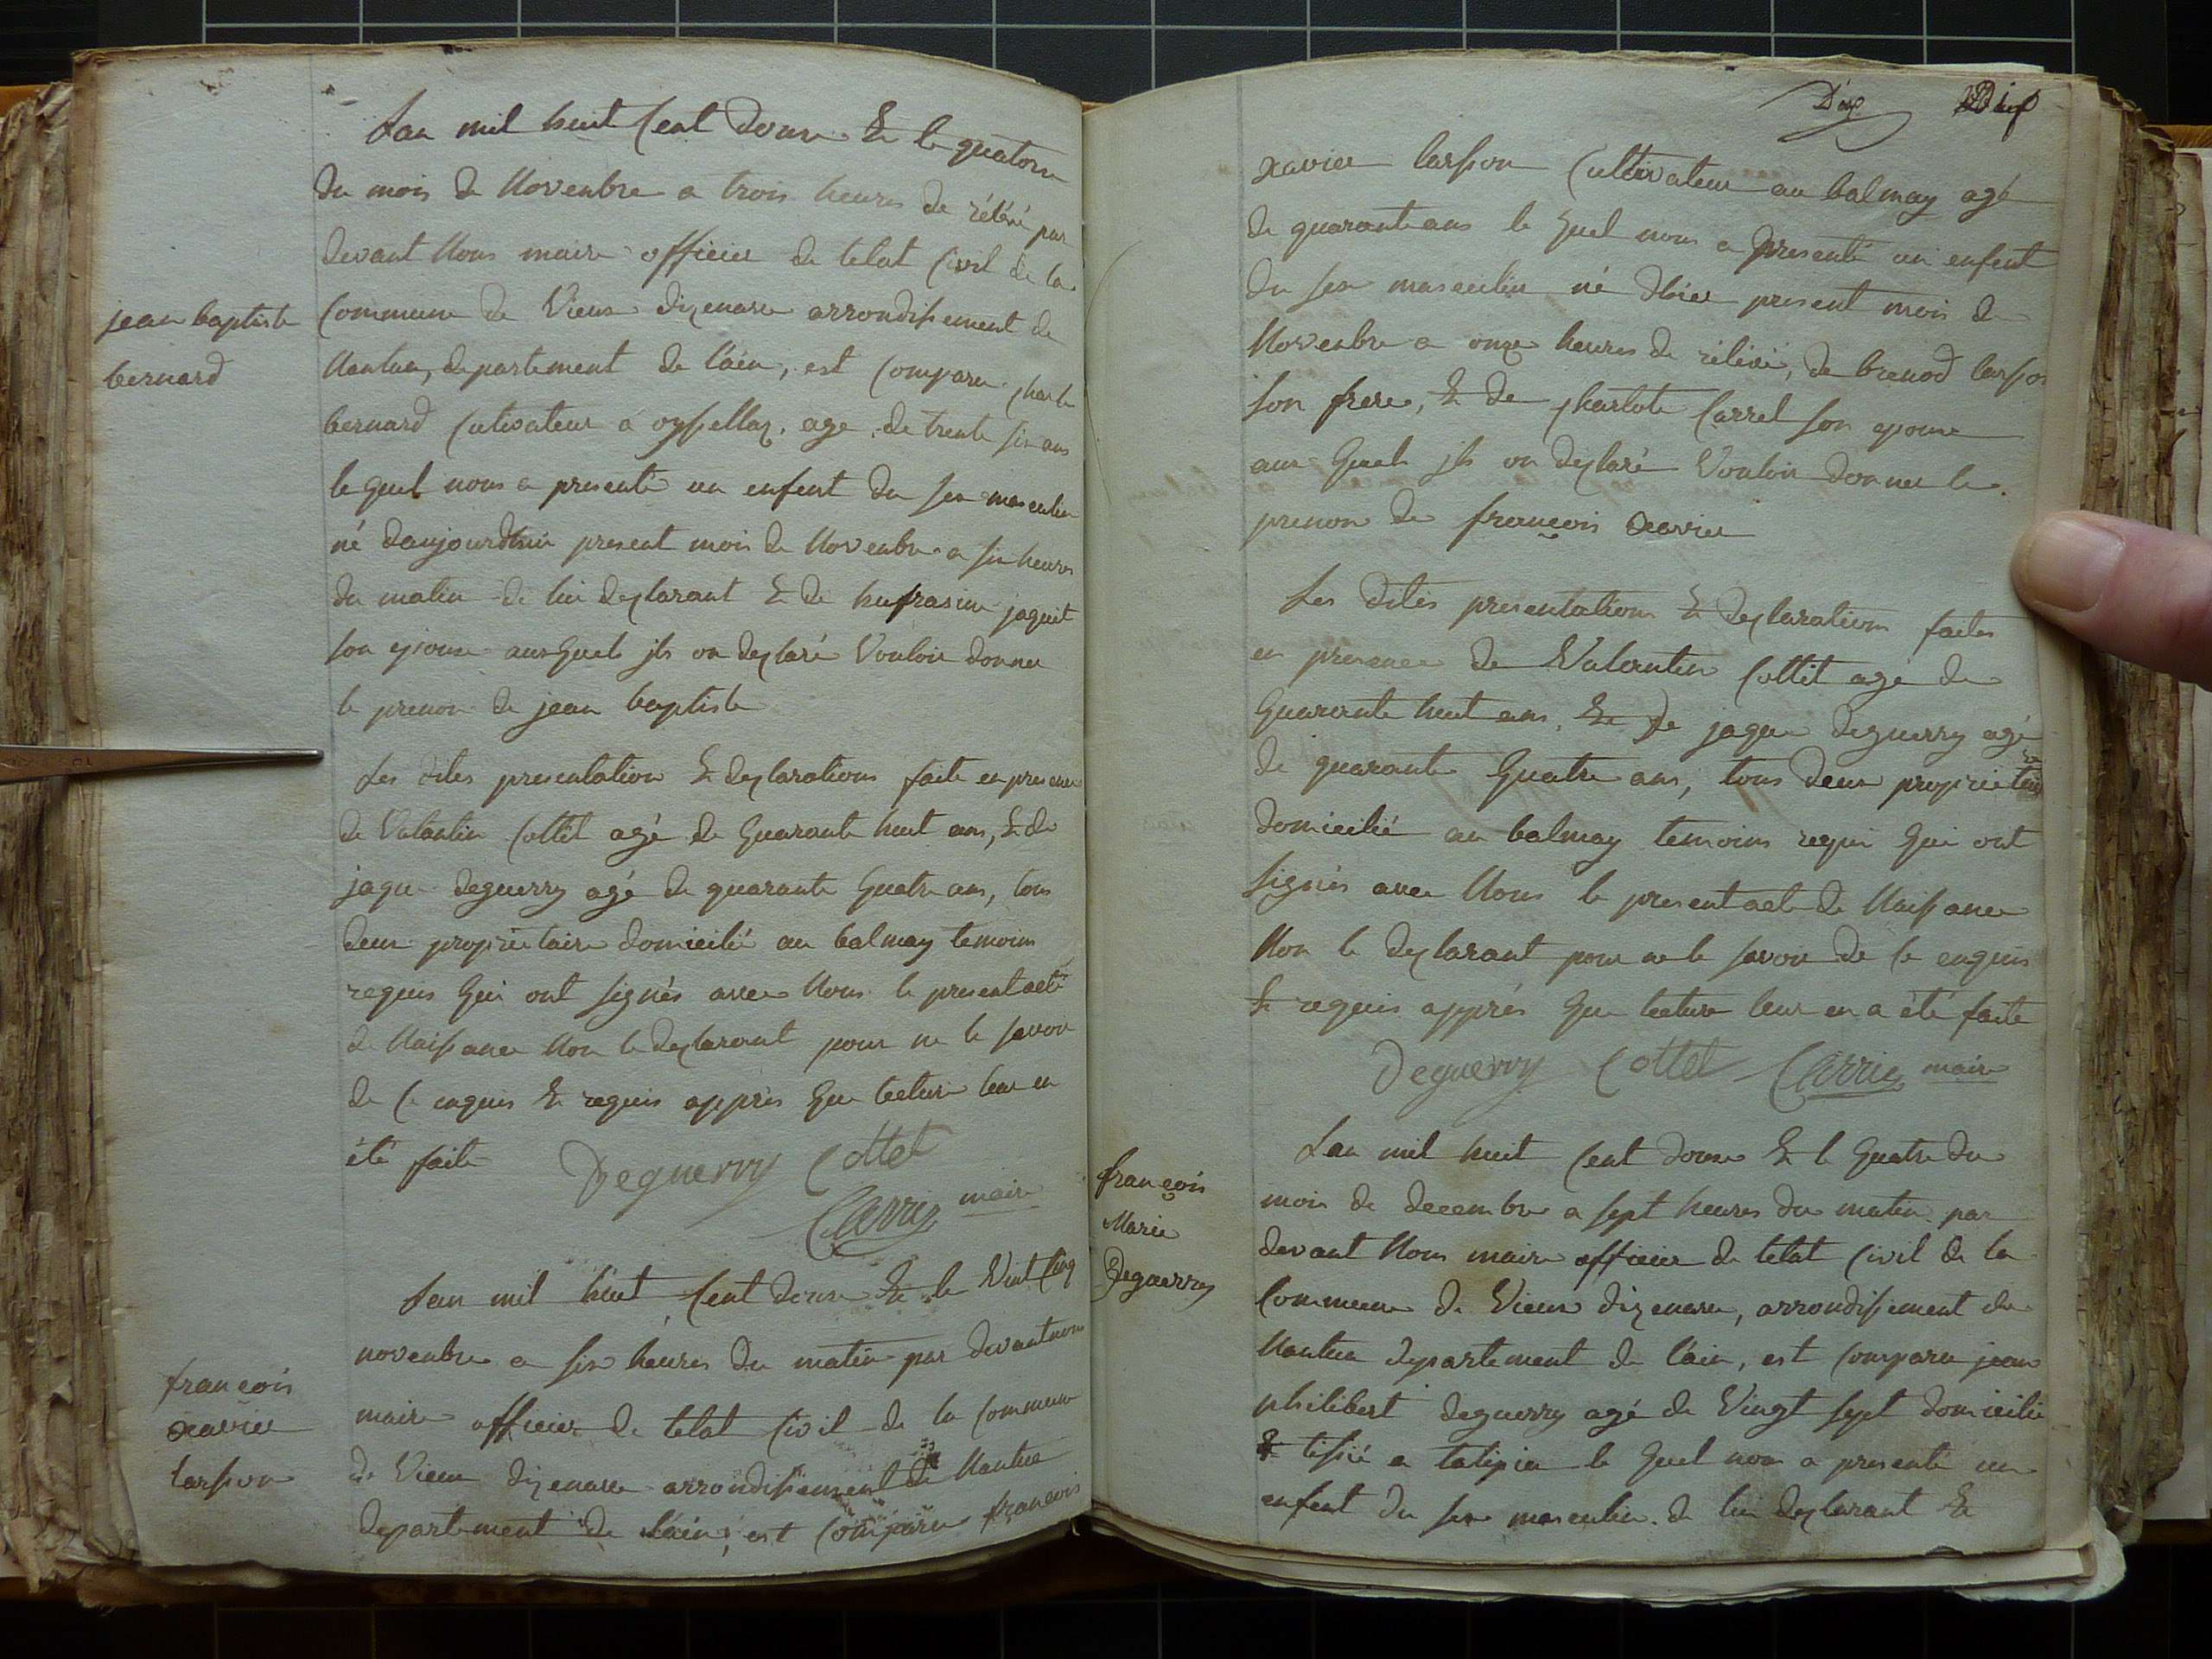 Lan mil huit Cent douze & le quatorze
du mois de Novenbre a trois heures de rélévé par
devant Nous maire officier de letat Civil de la
jean baptiste
bernard
Commune de Vieux dizenave arrondissement de
Nantua, departement de l'ain, est Comparu charle
bernard Cultivateur a oyssellaz. age de trente six ans
le quel nous a presenté un enfent du sex masculin
né daujourdhui present mois de Novenbre a six heures
du matin de lui deglarant & de hufrasine jaquit
son epouse ausquels jls on deglaré Vouloir donner
le prenon de jean baptiste
Les dites presentation & deglarations faite en presence
de Valantin Cottet agé de Quarante huit ans, & de
jaque deguerry agé de quarante Quatre ans, tous
deux proprietaire domicilié au balmay temoins
requis Qui ont signés avec Nous le present acte
de Naissance Non le deglarant pour ne le savoir
de Ce enquis & requis appres Que lecture leur en
été faite Deguerry Cottet
Carrier maire
françois
xavier
larson
Lan mil huit Cent douze & le Vint Cinq
novenbre a six heures du matin par devant nous
maire officier de letat Civil de la Commune
de Vieux dizenave arrondissement de Nantua
departement de lain, est Comparu françois
Dix Dix
xavier larson Cultivateur au balmay agé
de quarante ans le Quel nous a presenté un enfent
du sex masculin né dhier present mois de
Novenbre a onze heures de rélévé, de brenod larson
son frere, & de charlote Carrel son epouse
aux Quels jls on deglaré Vouloir donner le
prenon de françois xavier
Les dites presentations & deglarations faites
en presence de Valantin Cottet agé de
Quarante huit ans, & de jaque deguerry agé
de quarante Quatre ans, tous deux proprietaire
domicilié au balmay temoins requi Qui ont
signés avec Nous le present acte de Naissance
Non le deglarant pour ne le savoir de Ce enquis
& requis apprés Que lecture leur en a été faite
Deguerry Cottet Carrier maire
françois
Marie
Deguerry
Lan mil huit Cent douze & le Quatre du
mois de decembre a sept heures du matin par
devant Nous maire officier de letat Civil de la
Commune de Vieux dizenave, arrondissement de
Nantua departement de l'ain, est Comparu jean
philibert deguerry agé de Vingt sept domicilié
& tissié a talipia le Quel nous a presenté un
enfent du sex masculin de lui deglarant &